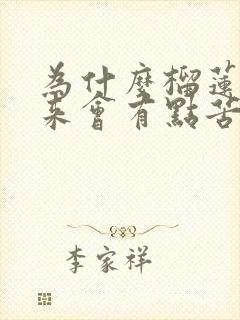 為什麼榴蓮
來會有點苦
李家祥